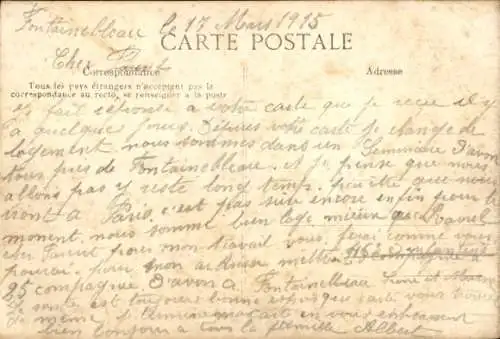 Fontainebleau le 17 Mars 1915
CARTE POSTALE
Cher
Correspondance
Adresse
Tous les pays étrangers n'acceptent pas la
correspondance au recto, se renseigner à la poste
fait reponse a votre carte que je recue il y
a quelque jours. votre carte je change de
logement nous sommes dans un Seminaire D'avon
tous pres de Fontainebleau. et je pense que nous
allons pas y reste long temp. que nous
iront a Paris, c'est pas sure encore enfin pour le
moment nous somme bien loge mieux que Ravel
cher pour mon travail vous ferai comme vous
pourai. pour mon
25 compagnie D'avon a Fontainebleau Seine et Marne
sante est toujours bonne vous
meme termine en vous embrasent
bien Bonjour a tous la famille Albert